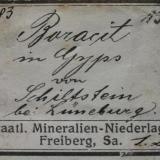 83
Boracit
in Gyps
von
Schiltstein
bei Lüneburg.
aatl. Mineralien-Niederlag
Freiberg, Sa.